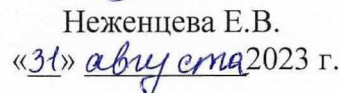 Неженцева Е.В.
«31» августа 2023 г.